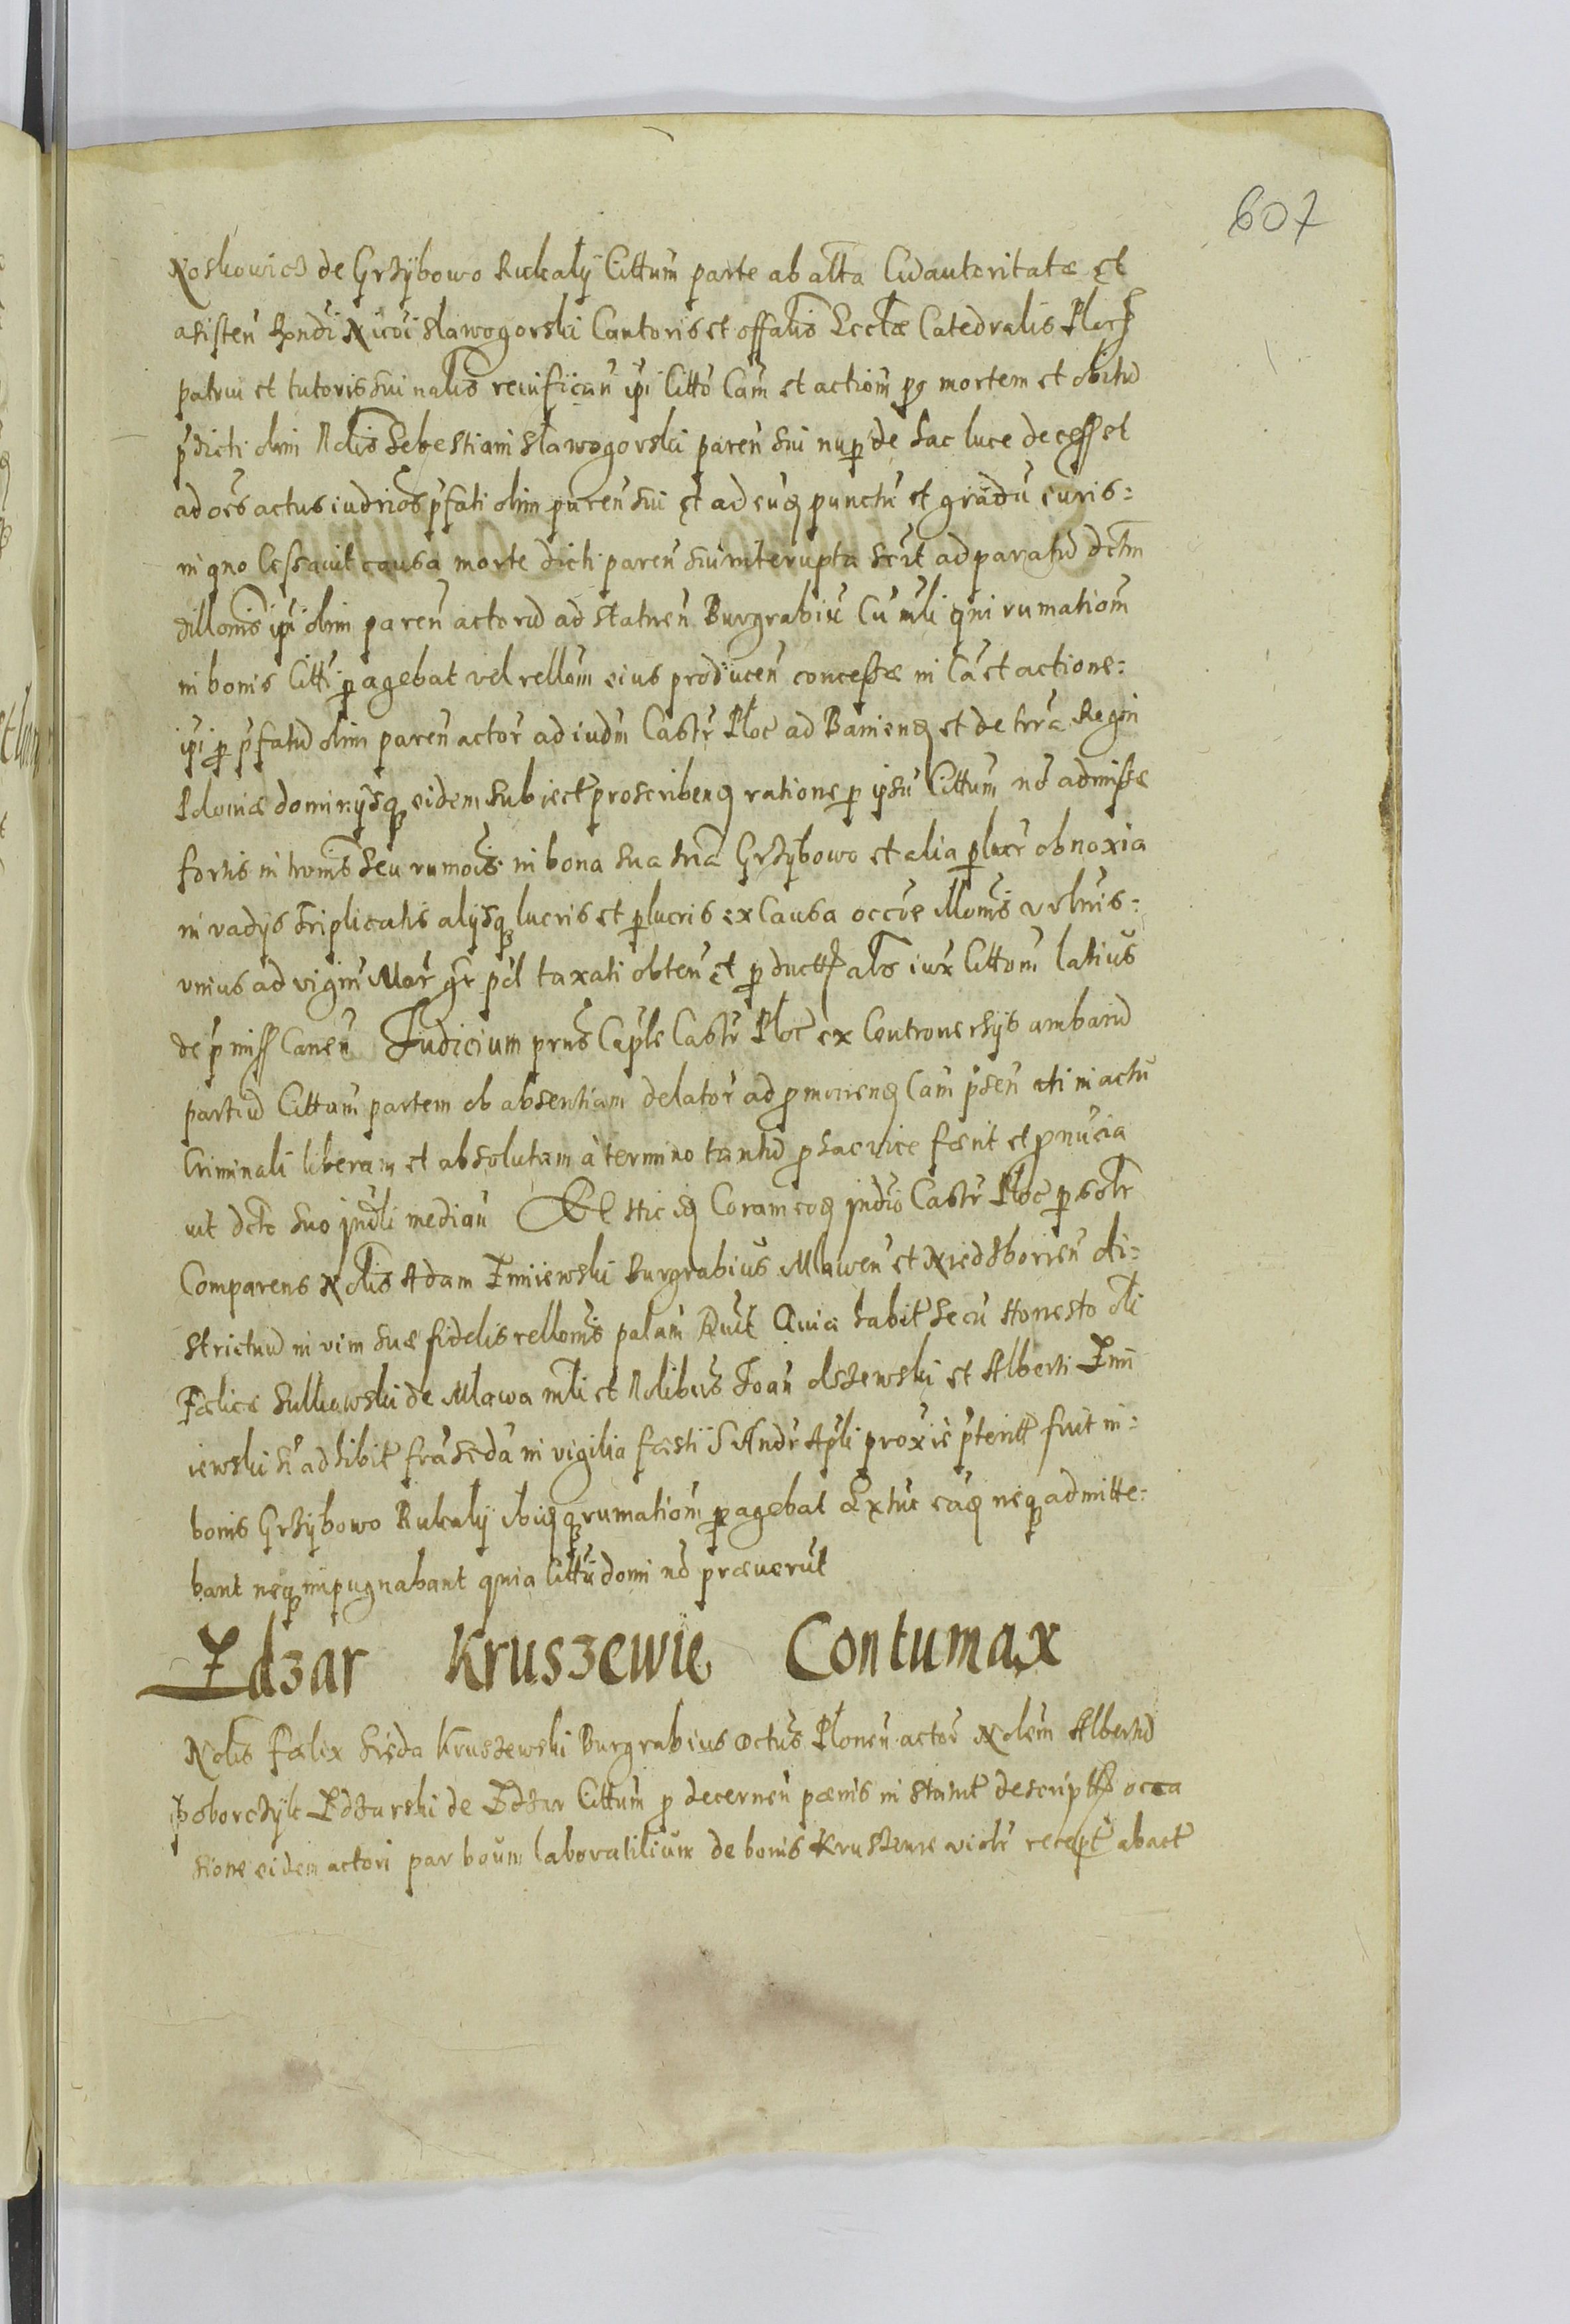 607
Noskowicz de Grzÿbowo Rukalÿ Cittum parte ab alta Cu autoritatæ et
asisten Rondi Nicoi Slawogorski Cantoris et offalis Eccłæ Catedralis Plocz
patrui et tutoris sui nalis reiuifican ipi Citto Cam et actiom pg mortem et obitu
pdicti olim Nolis Sebestiani Slawogorski paren sui nup de hac luce decess et
ad oes actus iudrios pfati olim paren sui et ad euq punctu et gradu euris=
in qno Cessauit causa morte dicti paren sui interupta scit ad paratu dctm
dillonis ipi olim paren actoru ad statuen Burgrabiu Cu mli qui rumatiom
in bonis Citti pagebat vel rellom eius producen concessæ in Ca et actione=
ipi p pfatu olim paren actor ad iudm Castr Ploc ad Banienq et de terra Regni
Poloniæ dominÿsq eidem subiect proscribenq ratione p ipsu Cittum no admissæ
fortis in troms seu rumois in bona sua hria Grzÿbowo et alia plucr obnoxia
in vadÿs triplicatis alÿsq lucris et plucris ex Causa occoe Monis vrlnis=
vnius ad vigin Mar gr pcl taxati obten et pductt als iux Cittom latius
de pmiss Canen Judicium prns Caple Castr Ploc ex Controuersÿs ambaru
partiu Cittam partem ob absentiam delator ad pmouenq Cam psen uti in actu
Criminali liberam et absolutam à termino tantu p hac vice fœrit et pnucia
uit dcto suo jndli median Et hic idq Coram eoq jndio Castr Ploc psolr
Comparens Nolis Adam Zmiewski Burgrabius Mlawen et Niedzborien di=
strictuu in vim suæ fidelis rellonis palam Rcuit Quia habit secu Honesto oli
Fælice Sulkowski de Mlawa mli et Nolibus Joan Olszewski et Alberti Zmi
iewski sr adhibit fra scda in vigilia fæsti S Andr Apli proxie pterit fuit in=
bonis Grzÿbowo Rukalÿ ibiqq rumatiom pagebat Extuc eaq neq admitte=
bant neq impugnabant quia Cittu domi no præuerut
Zdzar Kruszewie Contumax
Nolis Fælix Srzeda Kruszewski Burgrabius octus Plonen actor Nolem Albertu
Poborczÿk Zdzarski de Zdzar Cittum p decernen pœnis in statut descriptt occa
sione eidem actori par boum laboratilium de bonis Kruszewie violr recept abact